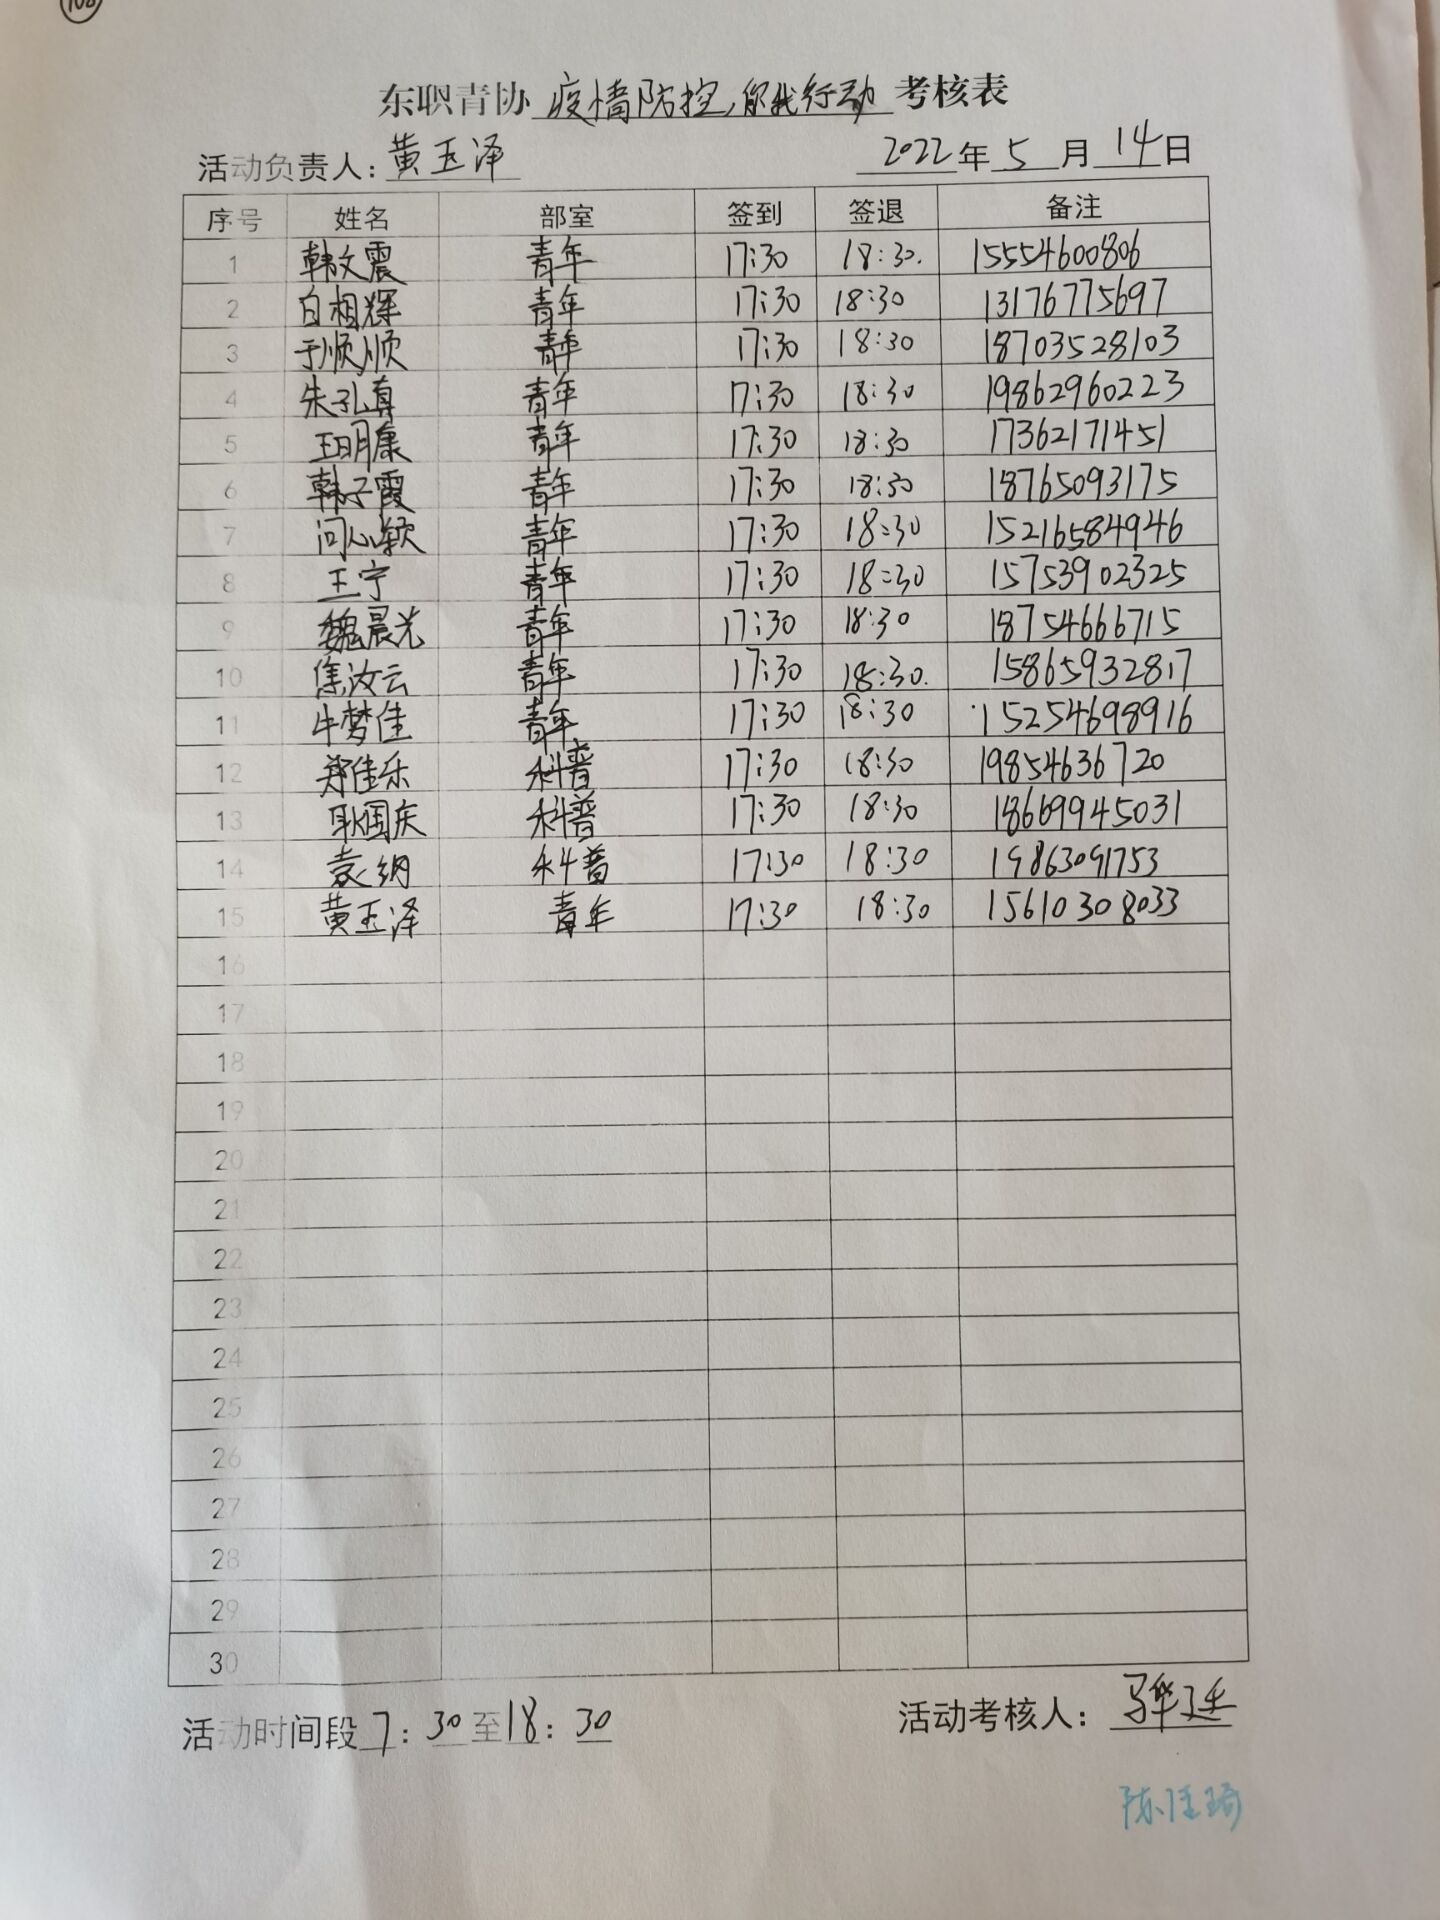 108
东职青协 疫情防控,你我行动 考核表
活动负责人: 黄玉泽 2022年5月14日
序号 姓名 部室 签到 签退 备注
1 韩文震 青年 17:30 18:30. 15554600806
2 白相辉 青年 17:30 18:30 13176775697
3 于顺顺 青年 17:30 18:30 18703528103
4 朱孔真 青年 17:30 18:30 19862960223
5 王明康 青年 17:30 18:30 17362171451
6 韩子霞 青年 17:30 18:30 18765093175
7 问心颖 青年 17:30 18:30 15216584946
8 王宁 青年 17:30 18:30 15753902325
9 魏晨光 青年 17:30 18:30 18754666715
10 焦汝云 青年 17:30 18:30. 15865932817
11 牛梦佳 青年 17:30 18:30 15254698916
12 郑佳乐 科普 17:30 18:30 19854636720
13 耿国庆 科普 17:30 18:30 18669945031
14 袁纳 科普 17:30 18:30 19863091753
15 黄玉泽 青年 17:30 18:30 15610308033
16
17
18
19
20
21
22
23
24
25
26
27
28
29
30
活动时间段 7:30至18:30 活动考核人:
陈佳琦